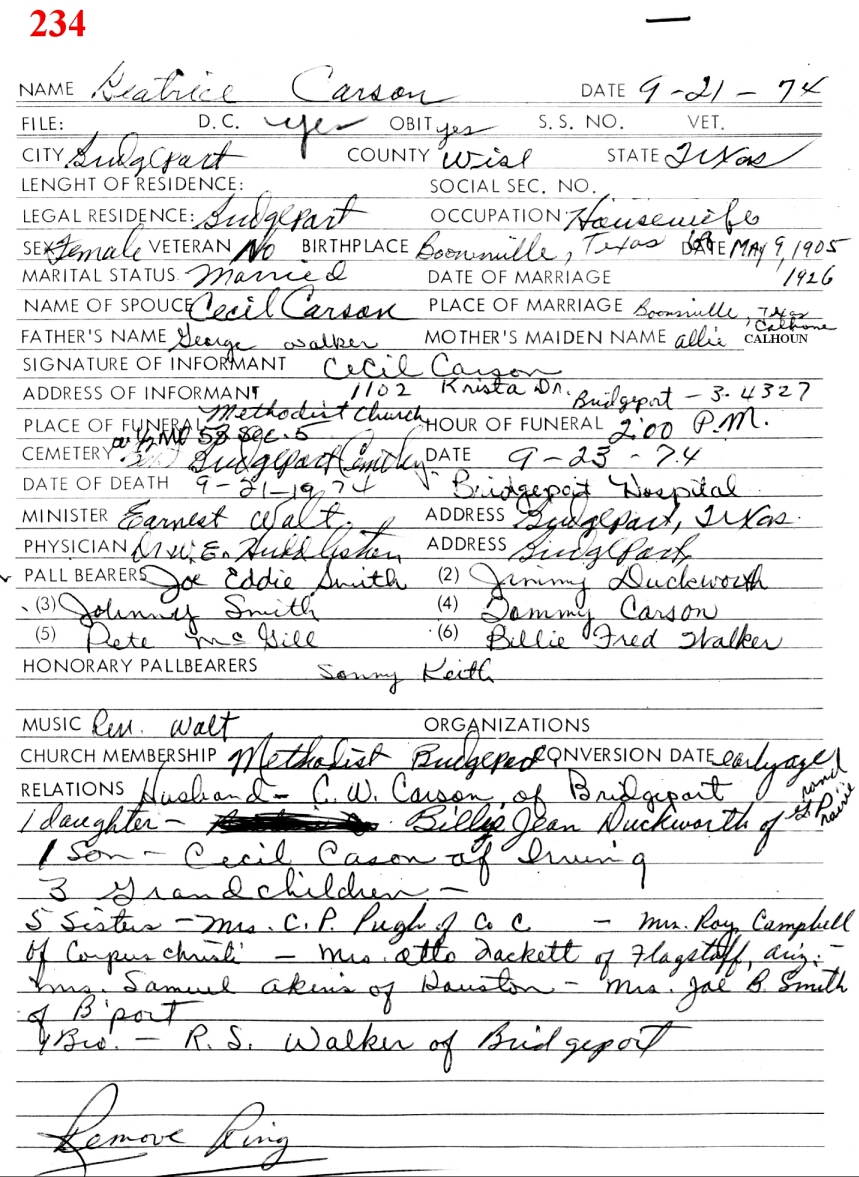 234
NAME Beatrice Carson DATE 9-21-74
FILE: D.C. yes OBIT yes S.S. NO. VET.
CITY Bridgeport COUNTY Wise STATE Texas
LENGHT OF RESIDENCE: SOCIAL SEC. NO.
LEGAL RESIDENCE: Bridgeport OCCUPATION Housewife
SEX Female VETERAN No BIRTHPLACE Boonsville, Texas DATE MAY 9, 1905
MARITAL STATUS Married DATE OF MARRIAGE 1926
NAME OF SPOUCE Cecil Carson PLACE OF MARRIAGE Boonsville, Texas
FATHER'S NAME George Walker MOTHER'S MAIDEN NAME Allie Calhone CALHOUN
SIGNATURE OF INFORMANT Cecil Carson
ADDRESS OF INFORMANT 1102 Krista Dr. Bridgeport - 3-4327
PLACE OF FUNERAL Methodist Church HOUR OF FUNERAL 2:00 P.M.
58 Sec. 5
CEMETERY Bridgeport Cemetery DATE 9-23-74
DATE OF DEATH 9-21-1974 Bridgeport Hospital
MINISTER Earnest Walt. ADDRESS Bridgeport, Texas.
PHYSICIAN Dr W.E. Huddleston ADDRESS Bridgeport,
PALL BEARERS Joe Eddie Smith (2) Jimmy Duckworth
(3) Johnny Smith (4) Tommy Carson
(5) Pete McGill (6) Billie Fred Walker
HONORARY PALLBEARERS Sonny Keith
MUSIC Rev. Walt ORGANIZATIONS
CHURCH MEMBERSHIP Methodist Bridgeport CONVERSION DATE early age
RELATIONS Husband - C. W. Carson, of Bridgeport
1 daughter - Billie Jean Duckworth of Grand Prairie
1 Son - Cecil Cason of Irving
3 Grandchildren -
5 Sisters - Mrs. C. P. Pugh of Co C - Mrs. Roy Campbell
of Corpus christi - Mrs. Otto Tackett of Flagstaff, Ariz. -
Mrs. Samuel Akins of Houston - Mrs. Joe B. Smith
of B'port
1 Bro. - R. S. Walker of Bridgeport
Remove Ring